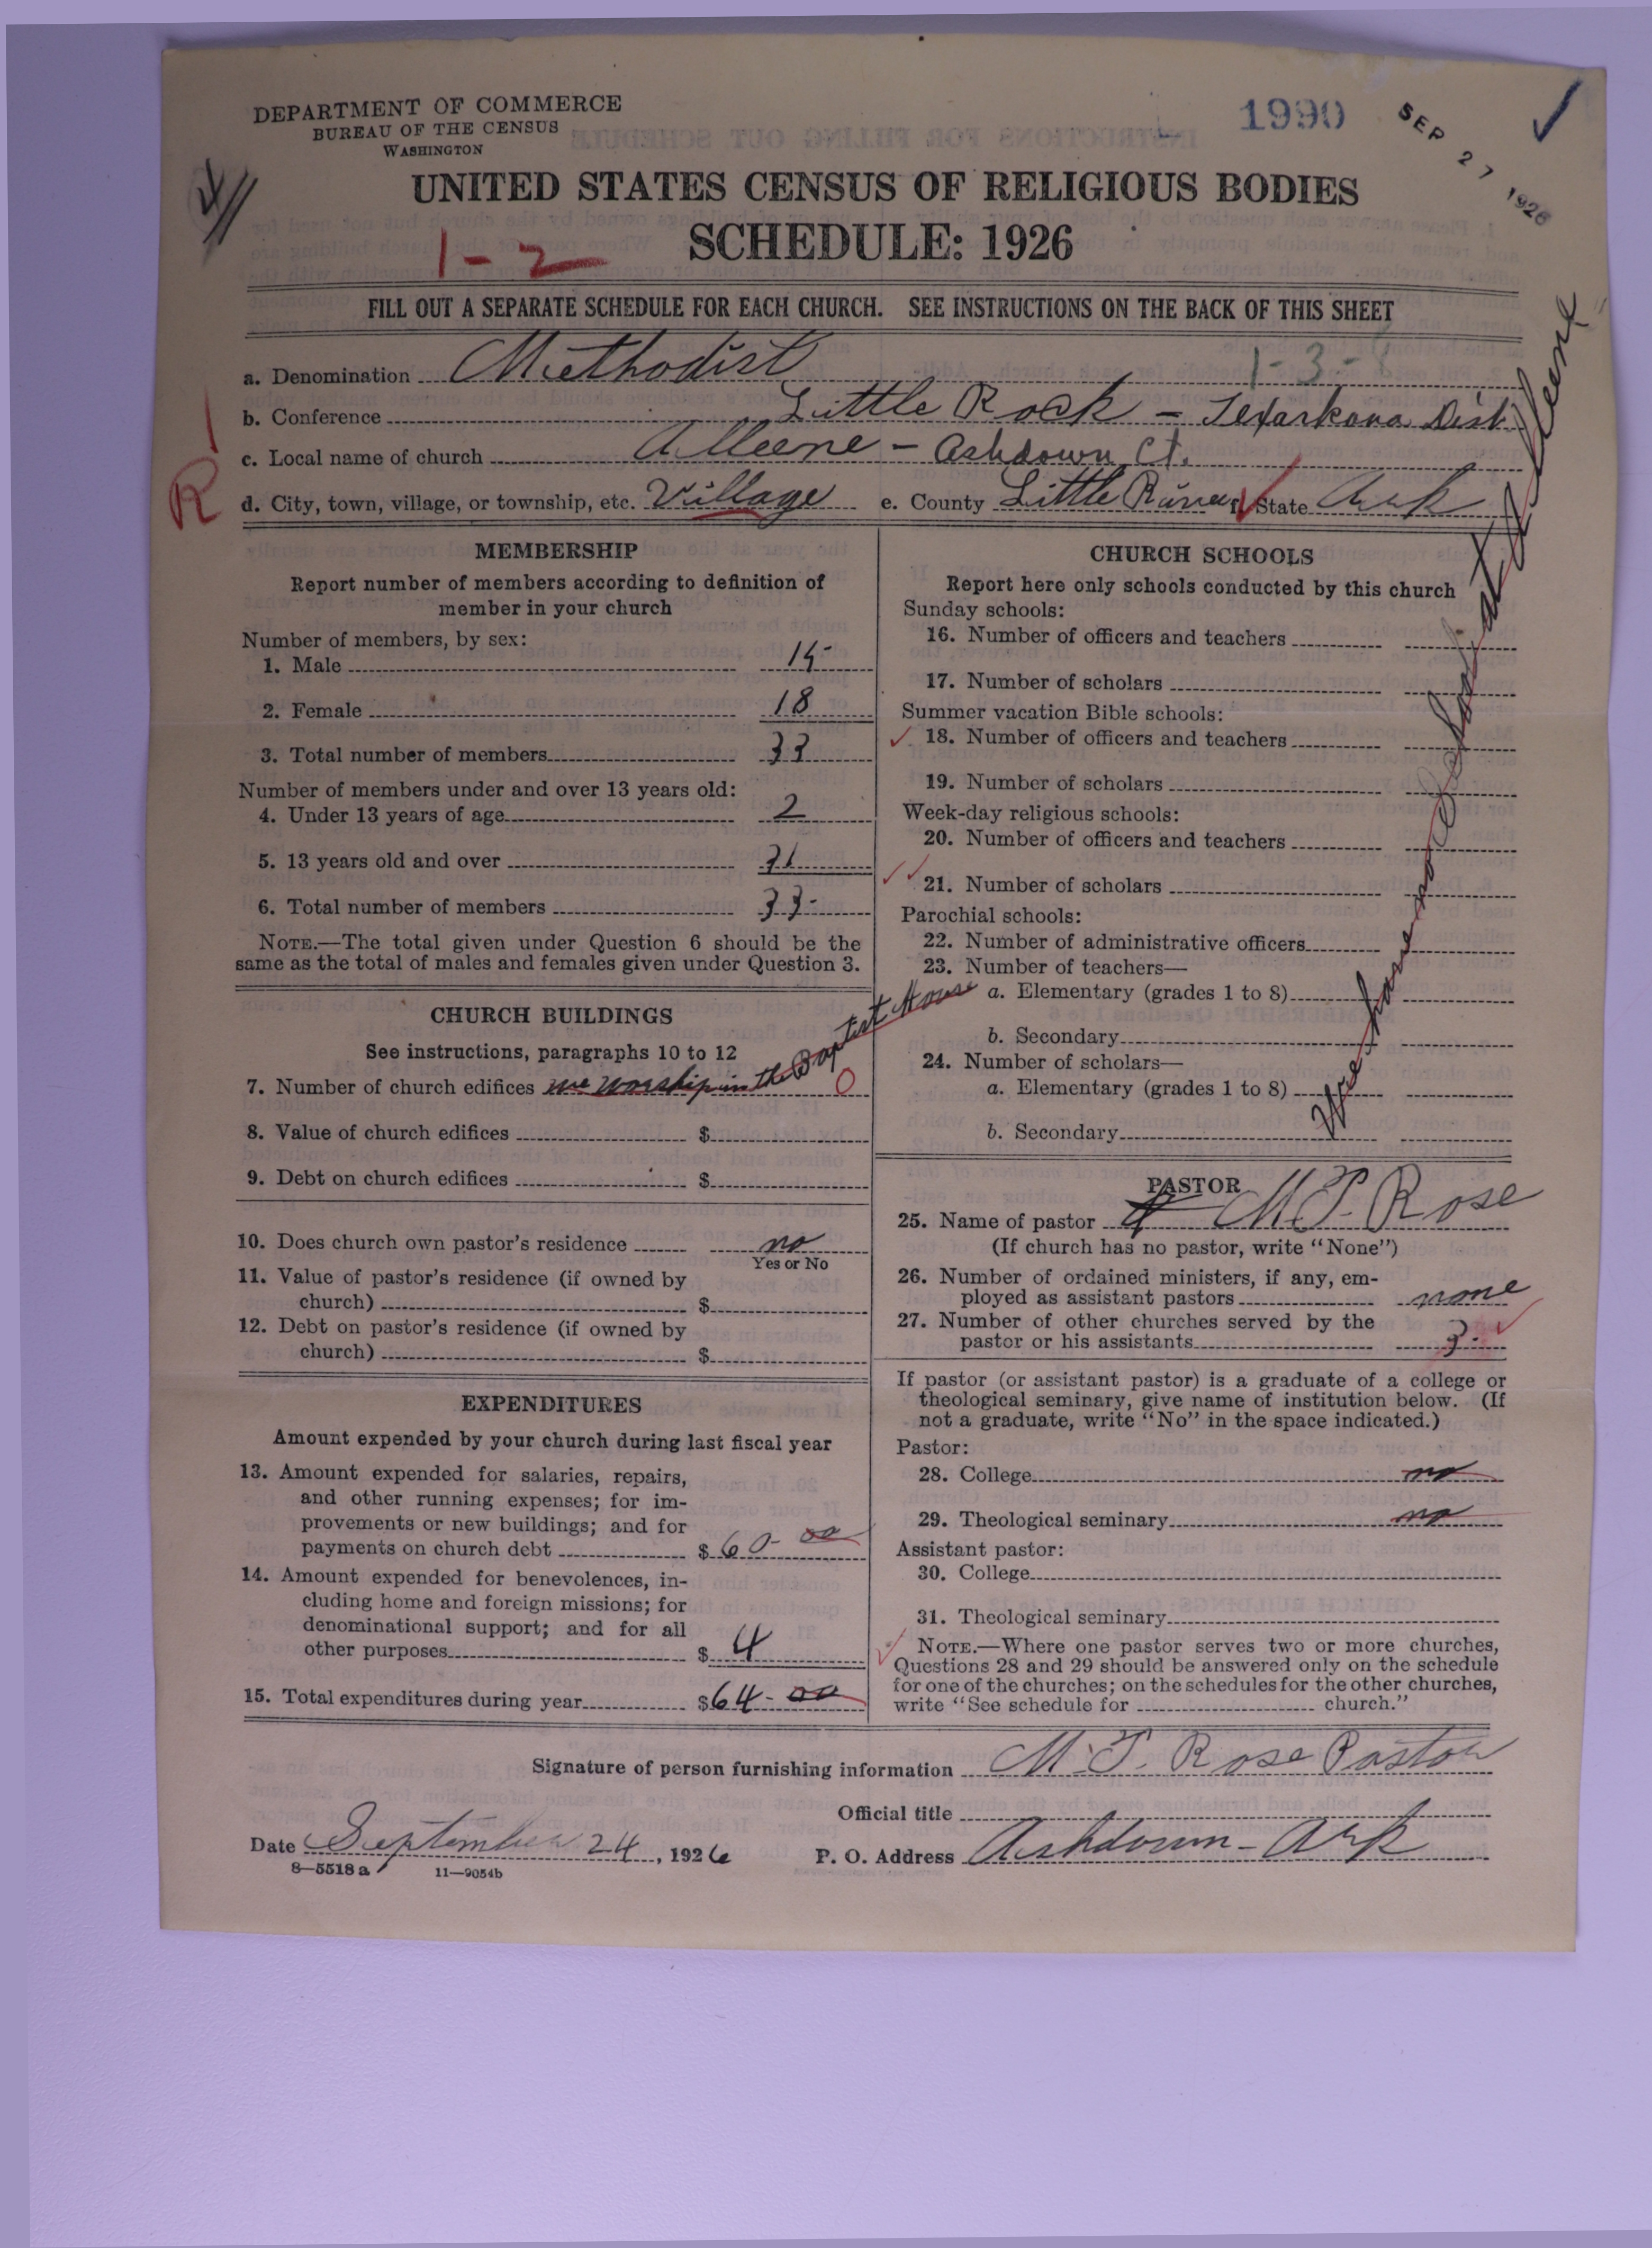 DEPARTMENT OF COMMERCE
BUREAU OF THE CENSUS
WASHINGTON
1990
SEP 27 1926
UNITED STATES CENSUS OF RELIGIOUS BODIES
SCHEDULE: 1926
1-2
FILL OUT A SEPARATE SCHEDULE FOR EACH CHURCH. SEE INSTRUCTIONS ON THE BACK OF THIS SHEET
a. Denomination Methodist 1-3-
b. Conference Little Rock - Texarkana Dist.
c. Local name of church Alleene - Ashdown Ct.
R
d. City, town, village, or township, etc. Village e. County Little River f. State Ark
MEMBERSHIP
Report number of members according to definition of
member in your church
Number of members, by sex:
1. Male 15
2. Female 18
3. Total number of members 33
Number of members under and over 13 years old:
4. Under 13 years of age 2
5. 13 years old and over 31
6. Total number of members 33
NOTE.—The total given under Question 6 should be the
same as the total of males and females given under Question 3.
CHURCH BUILDINGS
See instructions, paragraphs 10 to 12
7. Number of church edifices we worship in the Baptist House 0
8. Value of church edifices $
9. Debt on church edifices $
10. Does church own pastor's residence no
Yes or No
11. Value of pastor's residence (if owned by
church) $
12. Debt on pastor's residence (if owned by
church) $
EXPENDITURES
Amount expended by your church during last fiscal year
13. Amount expended for salaries, repairs,
and other running expenses; for im-
provements or new buildings; and for
payments on church debt $ 60-00
14. Amount expended for benevolences, in-
cluding home and foreign missions; for
denominational support; and for all
other purposes $ 4
15. Total expenditures during year $ 64-00
CHURCH SCHOOLS
Report here only schools conducted by this church
Sunday schools:
16. Number of officers and teachers
17. Number of scholars
Summer vacation Bible schools:
18. Number of officers and teachers
19. Number of scholars
Week-day religious schools:
20. Number of officers and teachers
21. Number of scholars
Parochial schools:
22. Number of administrative officers
23. Number of teachers—
a. Elementary (grades 1 to 8)
b. Secondary
24. Number of scholars—
a. Elementary (grades 1 to 8)
b. Secondary
We have no School at Alleene
PASTOR
25. Name of pastor M.T. Rose
(If church has no pastor, write "None")
26. Number of ordained ministers, if any, em-
ployed as assistant pastors none
27. Number of other churches served by the
pastor or his assistants 3
If pastor (or assistant pastor) is a graduate of a college or
theological seminary, give name of institution below. (If
not a graduate, write "No" in the space indicated.)
Pastor:
28. College no
29. Theological seminary no
Assistant pastor:
30. College
31. Theological seminary
NOTE.—Where one pastor serves two or more churches,
Questions 28 and 29 should be answered only on the schedule
for one of the churches; on the schedules for the other churches,
write "See schedule for church."
Signature of person furnishing information M.T. Rose Pastor
Official title
Date September 24, 1926 P. O. Address Ashdown-Ark
8—5518 a 11—9054b